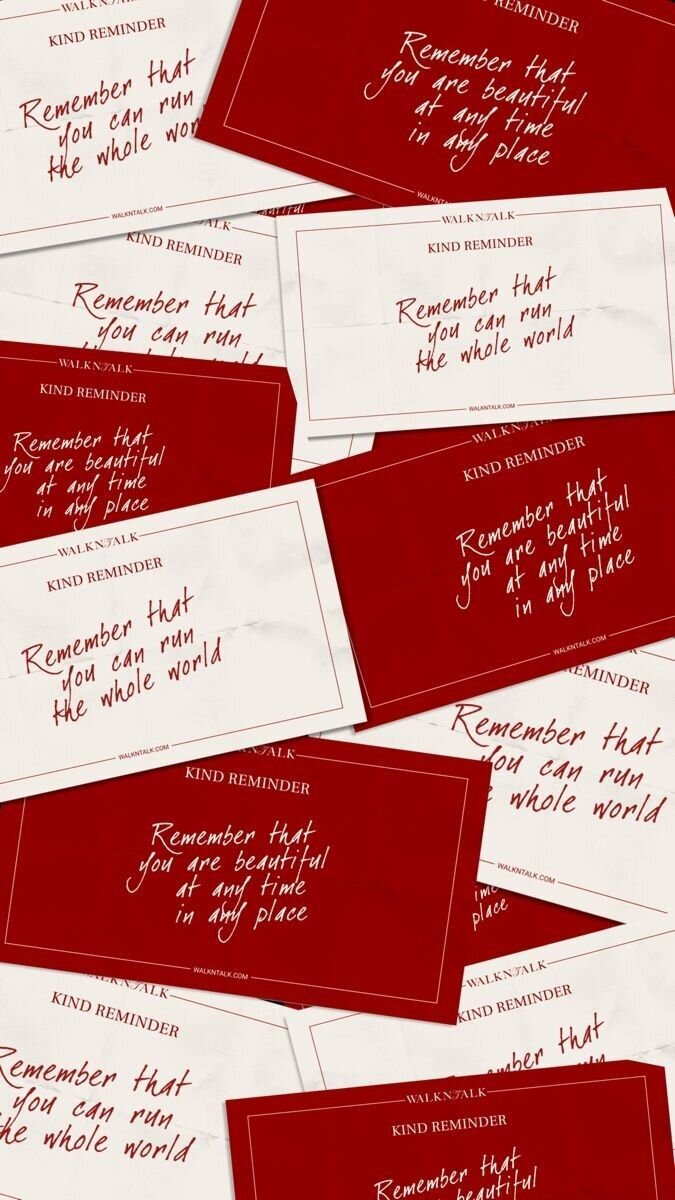 WALKN
KIND REMINDER
Remember that
you can run
the whole
WALKNTALK.COM
KIND REMINDER
Remember that
you are beautiful
at any time
in any place
WALKNTALK.COM
beautiful
KIND REMINDER
Remember that
you can run
WALKNTALK
KIND REMINDER
Remember that
you can run
the whole world
WALKNTALK.COM
WALKNTALK
KIND REMINDER
Remember that
you are beautiful
at any time
in any place
WALKNTALK
KIND REMINDER
Remember that
you are beautiful
at any time
in any place
WALKNTALK.COM
WALKNTALK
KIND REMINDER
Remember that
you can run
the whole world
WALKNTALK.COM
Remember that
you can run
whole world
WALKNTALK.COM
KIND REMINDER
Remember that
you are beautiful
at any time
in any place
WALKNTALK.COM
place
KIND REMINDER
Remember that
you can run
the whole world
WALKNTALK
KIND REMINDER
WALKNTALK
KIND REMINDER
Remember that
you are beautiful